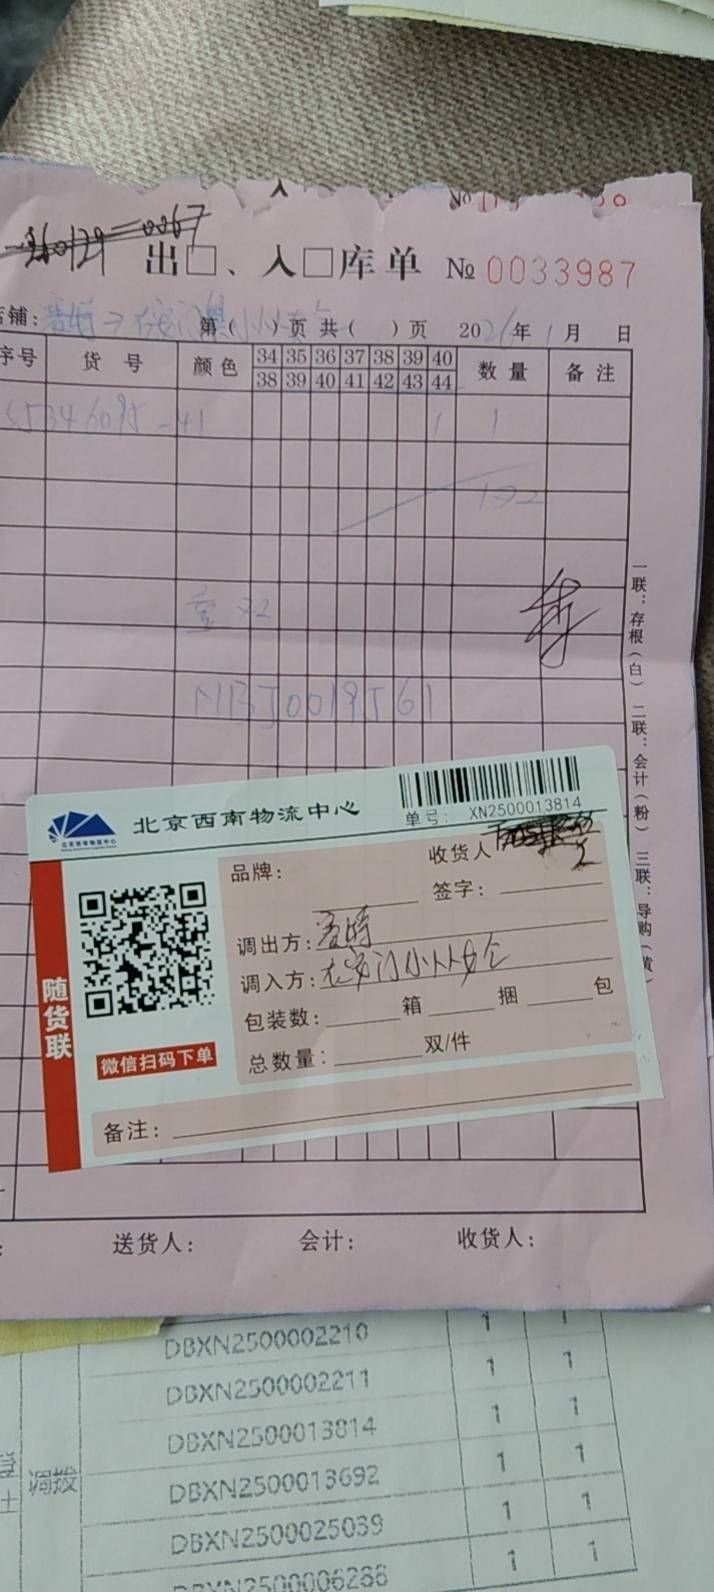 出□、入□库单 № 0033987
店铺: 第( )页 共( )页 2026年1月 日
序号 货号 颜色 34 35 36 37 38 39 40 数量 备注
38 39 40 41 42 43 44
S5346095-41 1 1
NBJ0019J61
一联：存根（白） 二联：会计（粉） 三联：导购（黄）
北京西南物流中心
单号: XN2500013814
随货联
微信扫码下单
品牌:
收货人
签字:
调出方: 赛特
调入方:
包装数: 箱 捆 包
总数量: 双/件
备注:
送货人: 会计: 收货人:
DBXN2500002210 1 1
DBXN2500002211 1 1
DBXN2500013814 1 1
调拨
DBXN2500013692 1 1
DBXN2500025039 1 1
DBXN2500006288 1 1